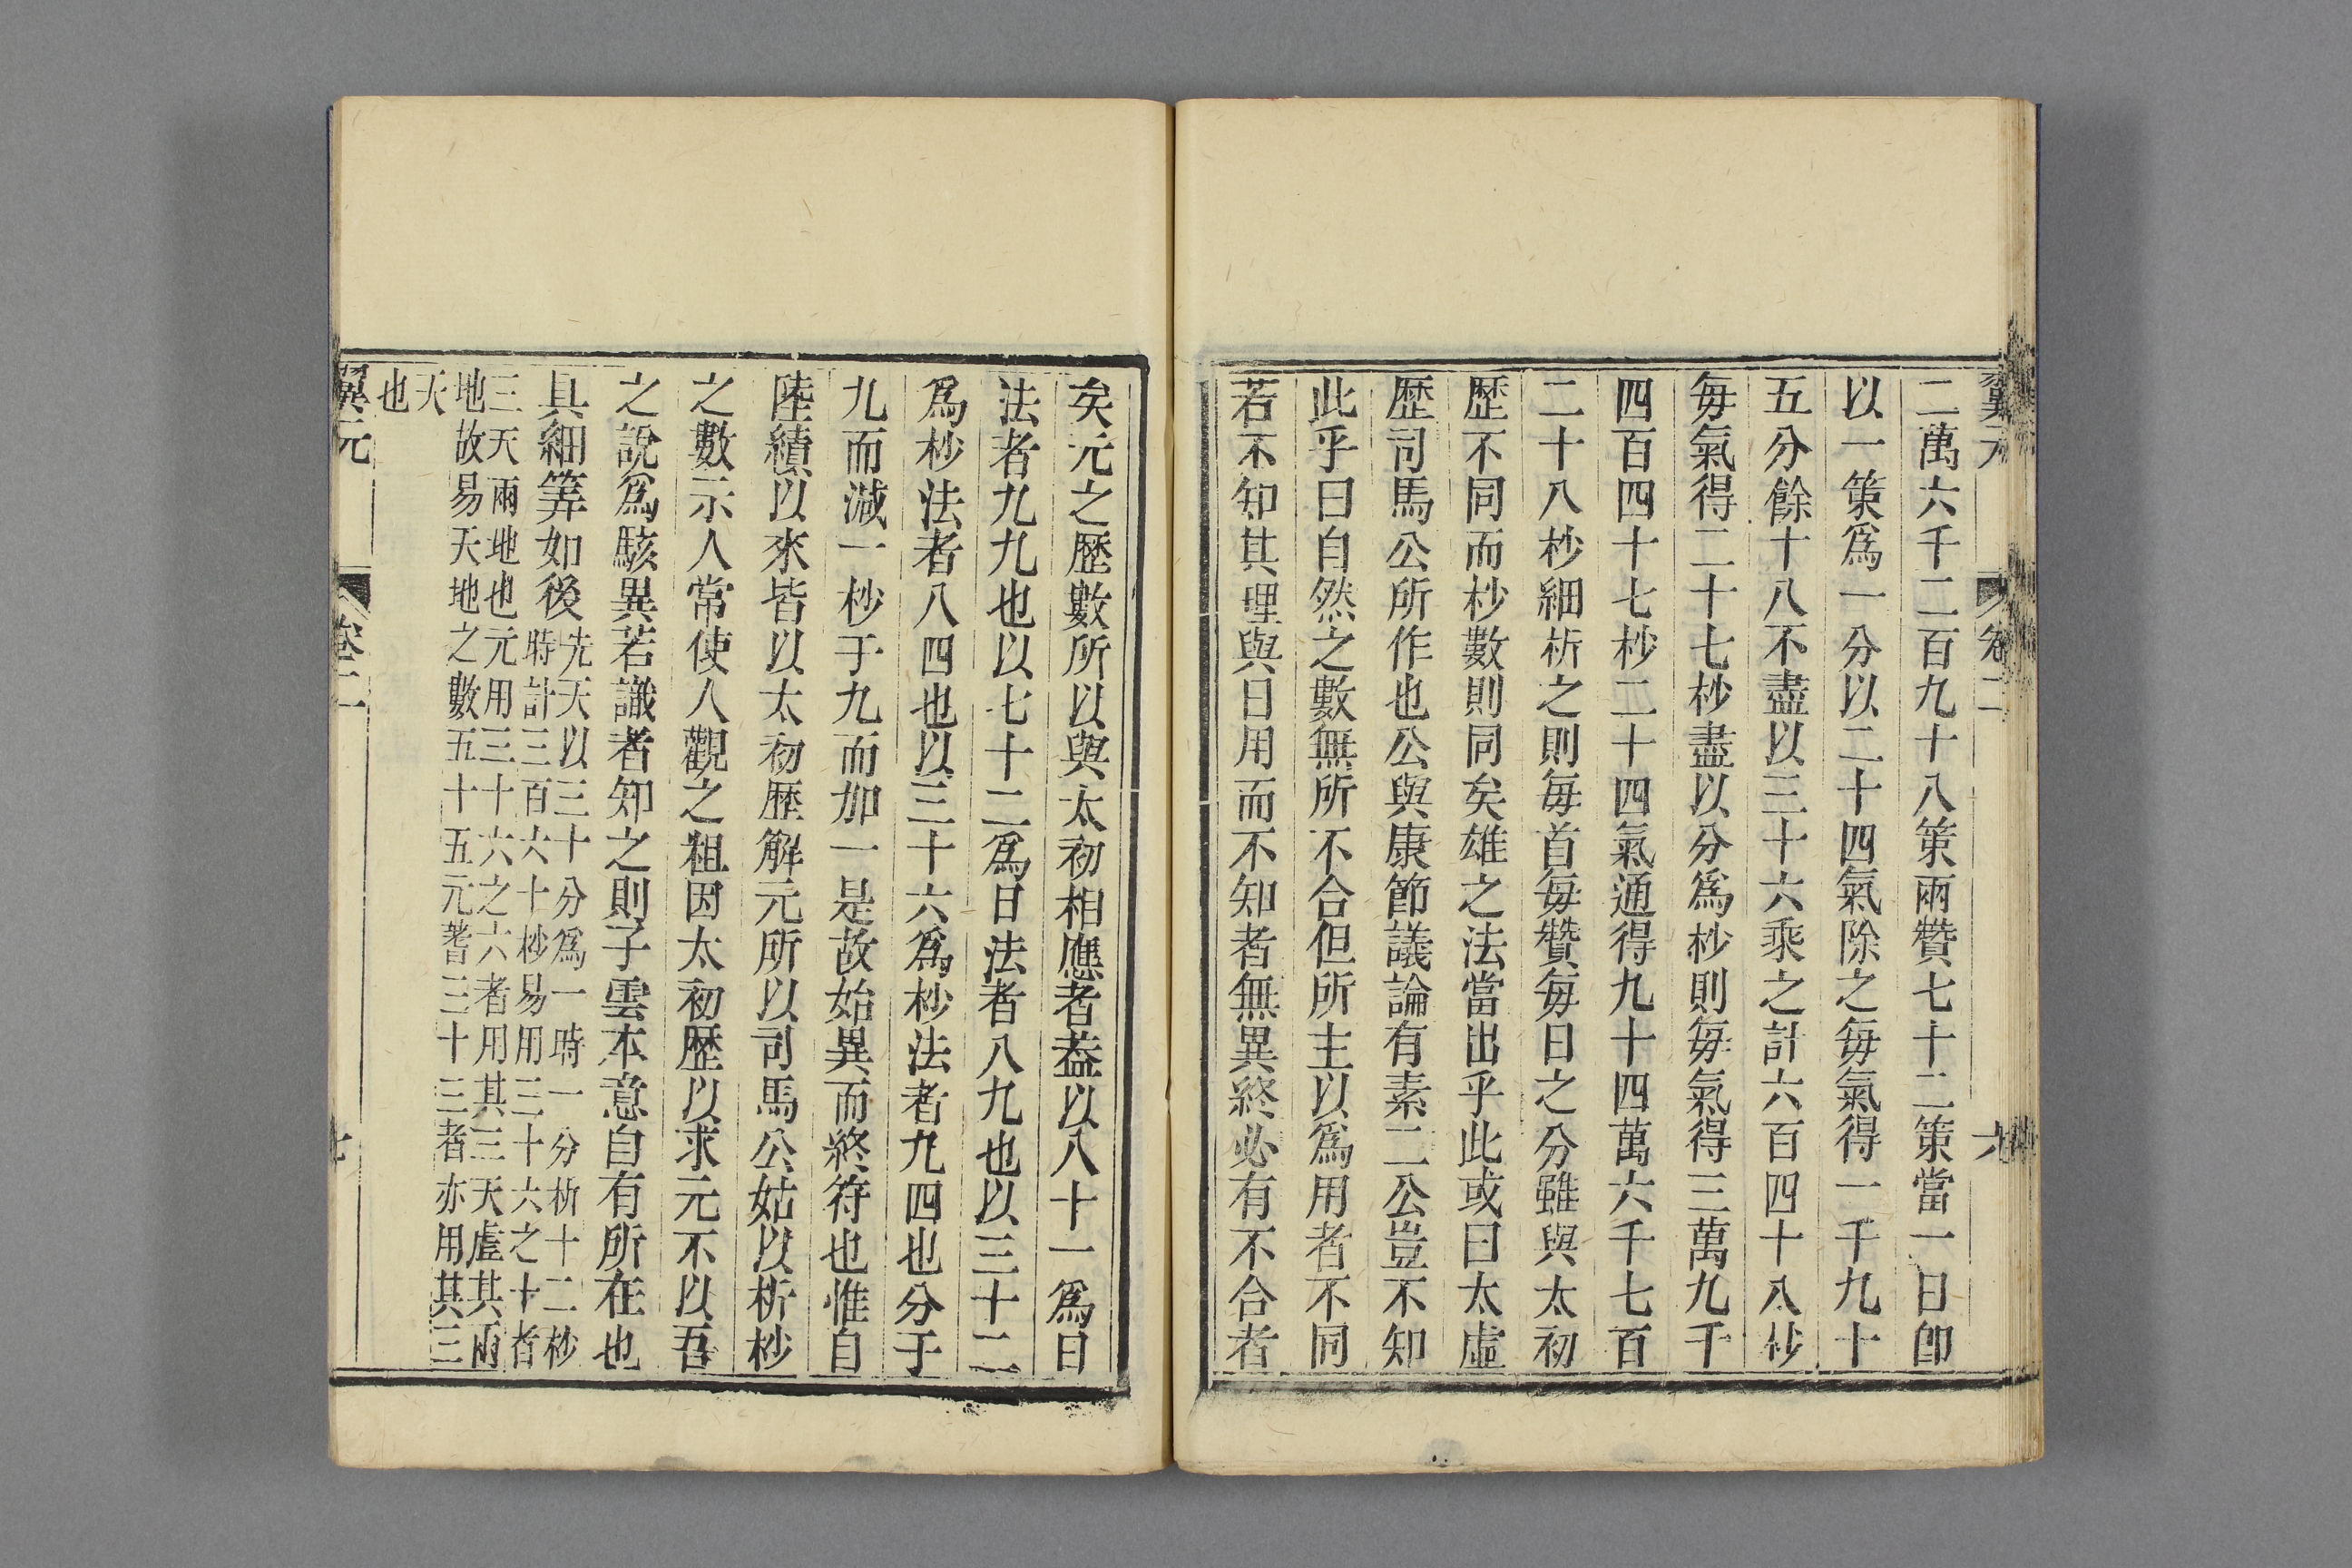 翼元
卷二
六
二萬六千二百九十八策兩贊七十二策當一日卽
以一策爲一分以二十四氣除之每氣得一千九十
五分餘十八不盡以三十六乘之計六百四十八杪
每氣得二十七杪盡以分爲杪則每氣得三萬九千
四百四十七杪二十四氣通得九十四萬六千七百
二十八杪細析之則每首每贊每日之分雖與太初
歷不同而杪數則同矣雄之法當出乎此或曰太虛
歷司馬公所作也公與康節議論有素二公豈不知
此乎曰自然之數無所不合但所主以爲用者不同
若不知其理與日用而不知者無異終必有不合者
矣元之歷數所以與太初相應者葢以八十一爲日
法者九九也以七十二爲日法者八九也以三十二
爲杪法者八四也以三十六爲杪法者九四也分于
九而減一杪于九而加一是故始異而終符也惟自
陸績以來皆以太初歷解元所以司馬公姑以析杪
之數示人常使人觀之粗因太初歷以求元不以吾
之說爲駭異若識者知之則子雲本意自有所在也
具細筭如後先天以三十分爲一時一分析十二杪
時計三百六十杪易用三十六之十者
三天兩地也元用三十六之六者用其三天虛其兩
地故易天地之數五十五元蓍三十三者亦用其三
天
也
翼元
卷二
七